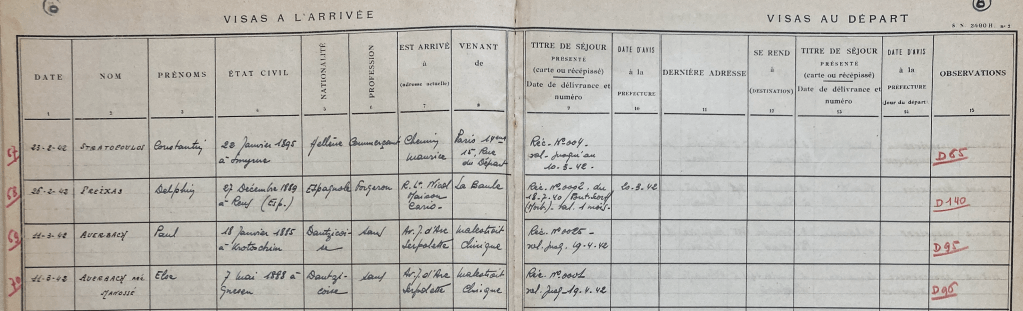 VISAS A L'ARRIVÉE
VISAS AU DÉPART
S. N. 2400 H. n° 2
DATE
NOM
PRÉNOMS
ÉTAT CIVIL
NATIONALITÉ
PROFESSION
EST ARRIVÉ
à
(adresse actuelle)
VENANT
de
TITRE DE SÉJOUR
PRÉSENTÉ
(carte ou récépissé)
Date de délivrance et
numéro
DATE D'AVIS
à la
PREFECTURE
DERNIÈRE ADRESSE
SE REND
à
(DESTINATION)
TITRE DE SÉJOUR
PRÉSENTÉ
(carte ou récépissé)
Date de délivrance et
numéro
DATE D'AVIS
à la
PRÉFECTURE
Jour du départ
OBSERVATIONS
1 2 3 4 5 6 7 8 9 10 11 12 13 14 15
67
23-2-42
STRATOPOULOS
Constantin
20 Janvier 1895
à Smyrne
Hellène
Commerçant
Chemin
Maurice
Paris 14ème
15, Rue
du Départ
Réc. N° 004.
val. jusqu'au
10-3-42.
D 65
68
25-2-42
FREIXAS
Delphin
27 Décembre 1889
à Reus (Esp.)
Espagnole
Forgeron
Maison
Cario
La Baule
18.7.40
Val. 1 mois.
20.3.42
D 140
69
11-3-42
AUERBACH
Paul
18 Janvier 1885
à Krotoschin
sans
Av. J. d'Arc
Serpolette
Malestroit
Clinique
Réc. N° 0025.
val. jusq. 19.4.42
D 95
70
11-3-42
AUERBACH née
MANASSÉ
Else
7 Mai 1898 à
Gnesen
Dantzi-
coise
sans
Av. J. d'Arc
Serpolette
Malestroit
Clinique
val. jusq. 19.4.42
D 96